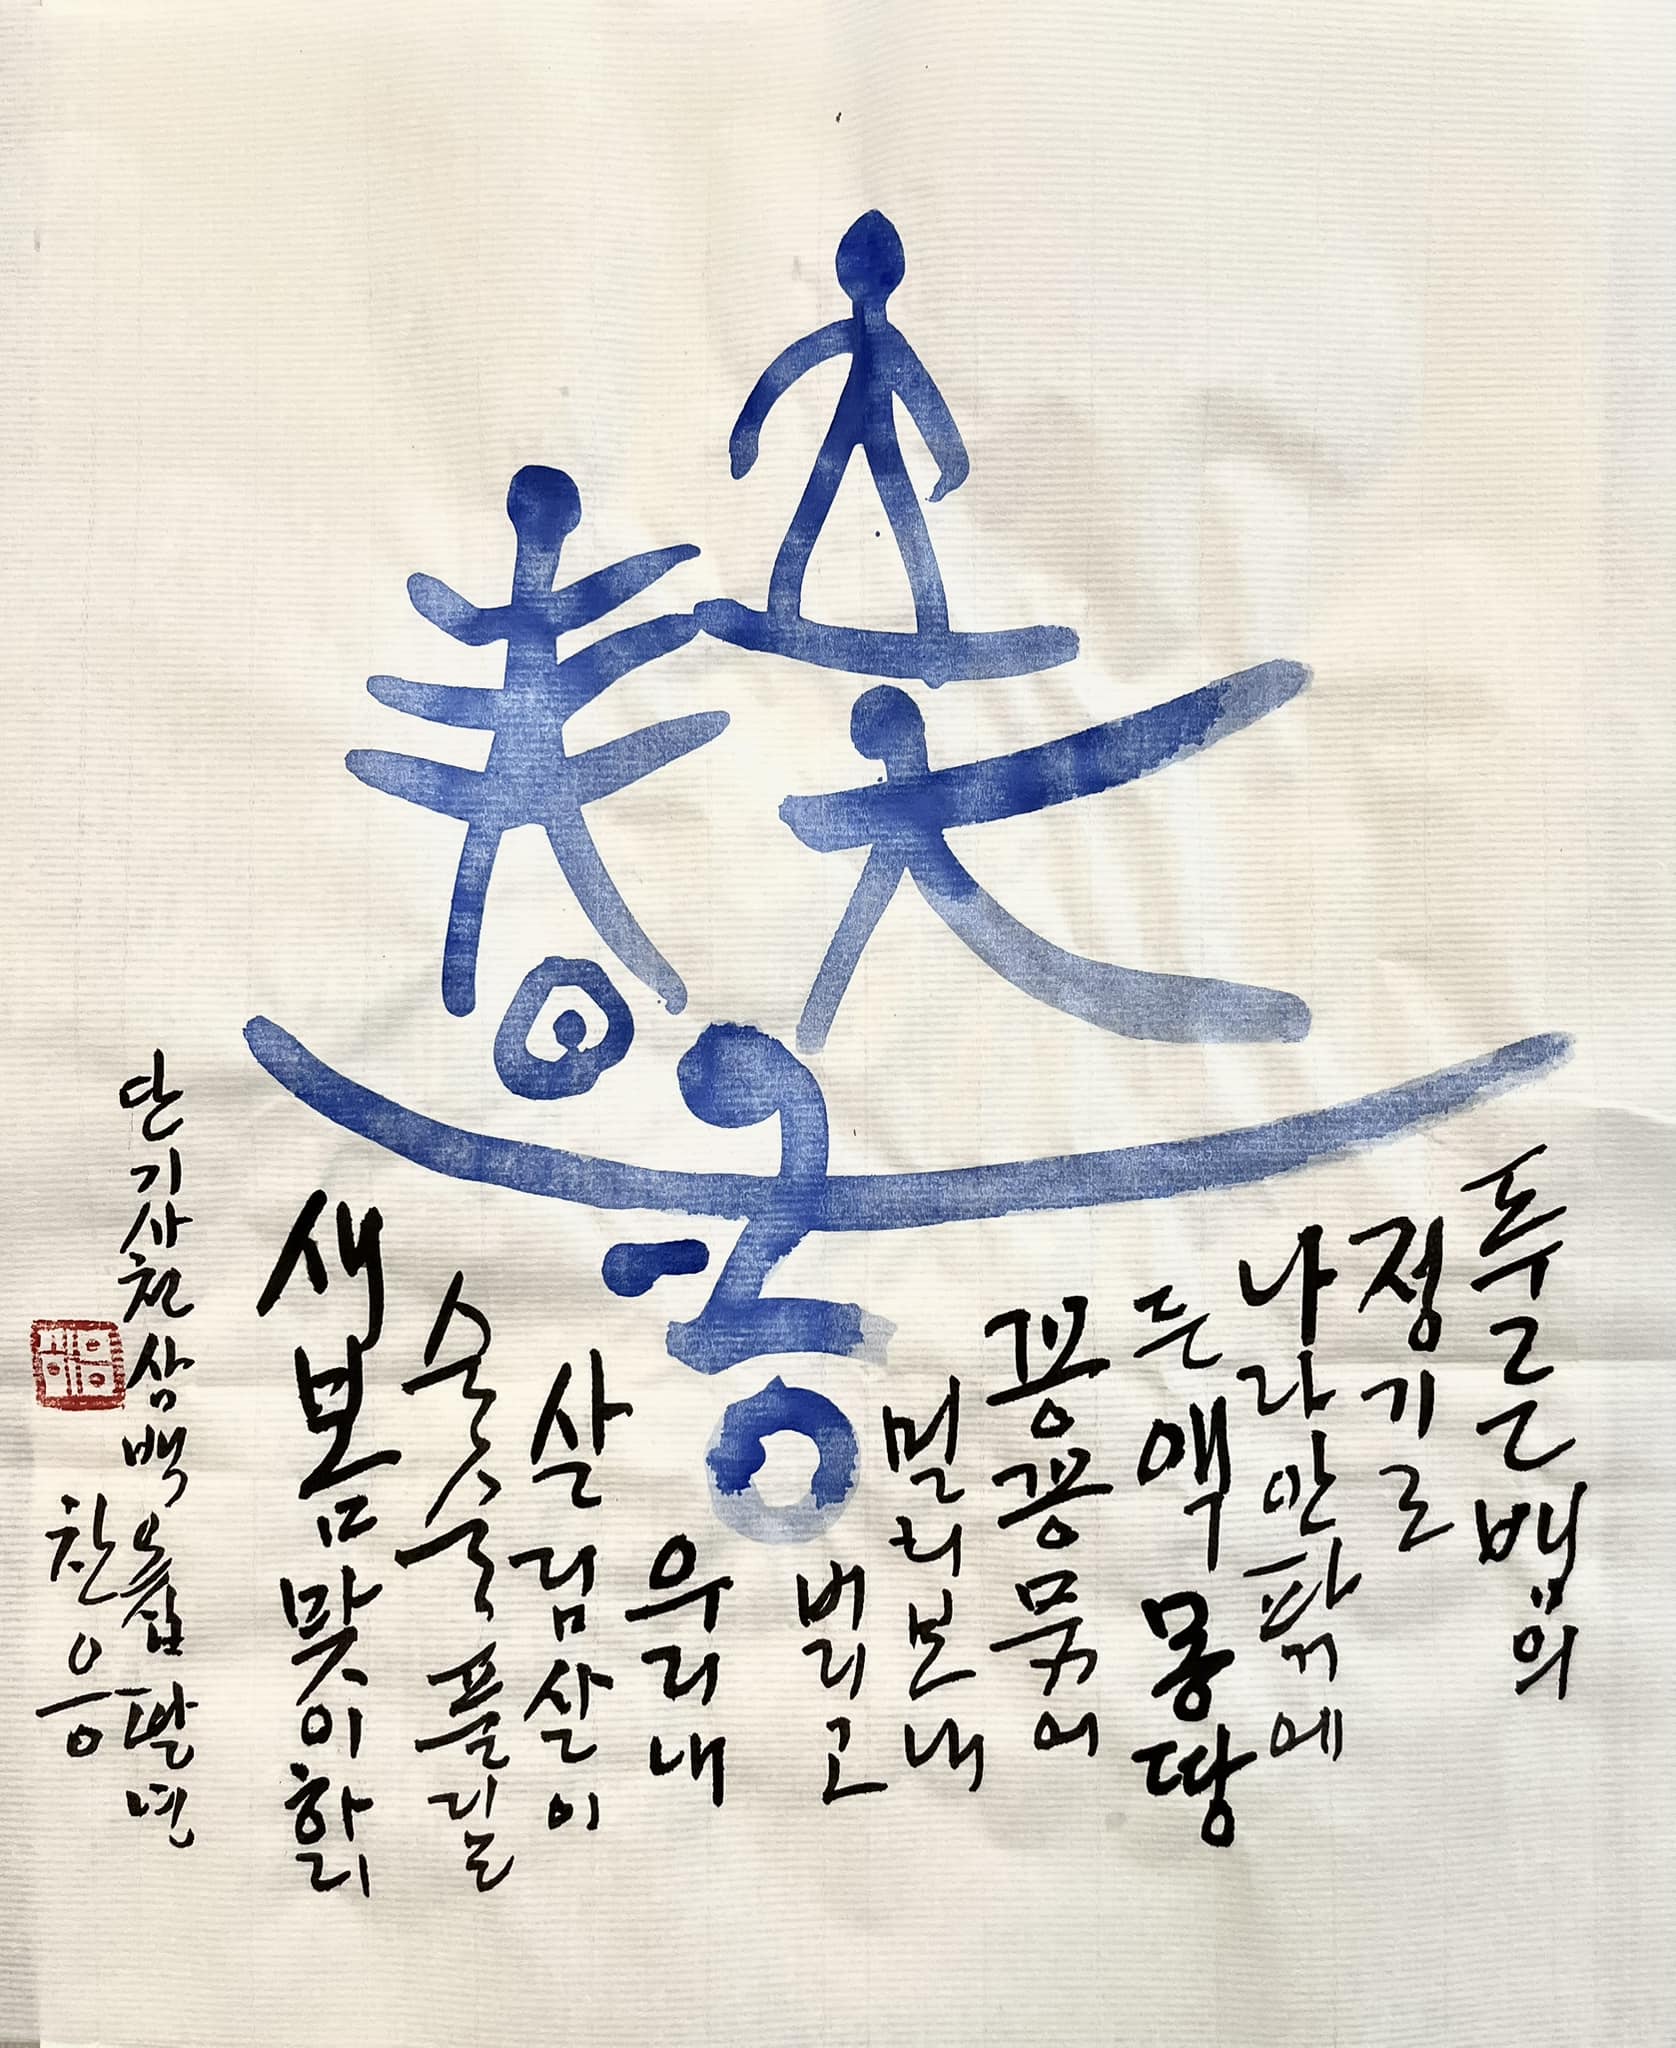 푸른뱀의
정기로
나라안팎에
든액몽땅
꽁꽁묶어
멀리보내
버리고
우리내
살림살이
술술풀릴
새봄맞이하리
단기사천삼백오십팔년
찬응